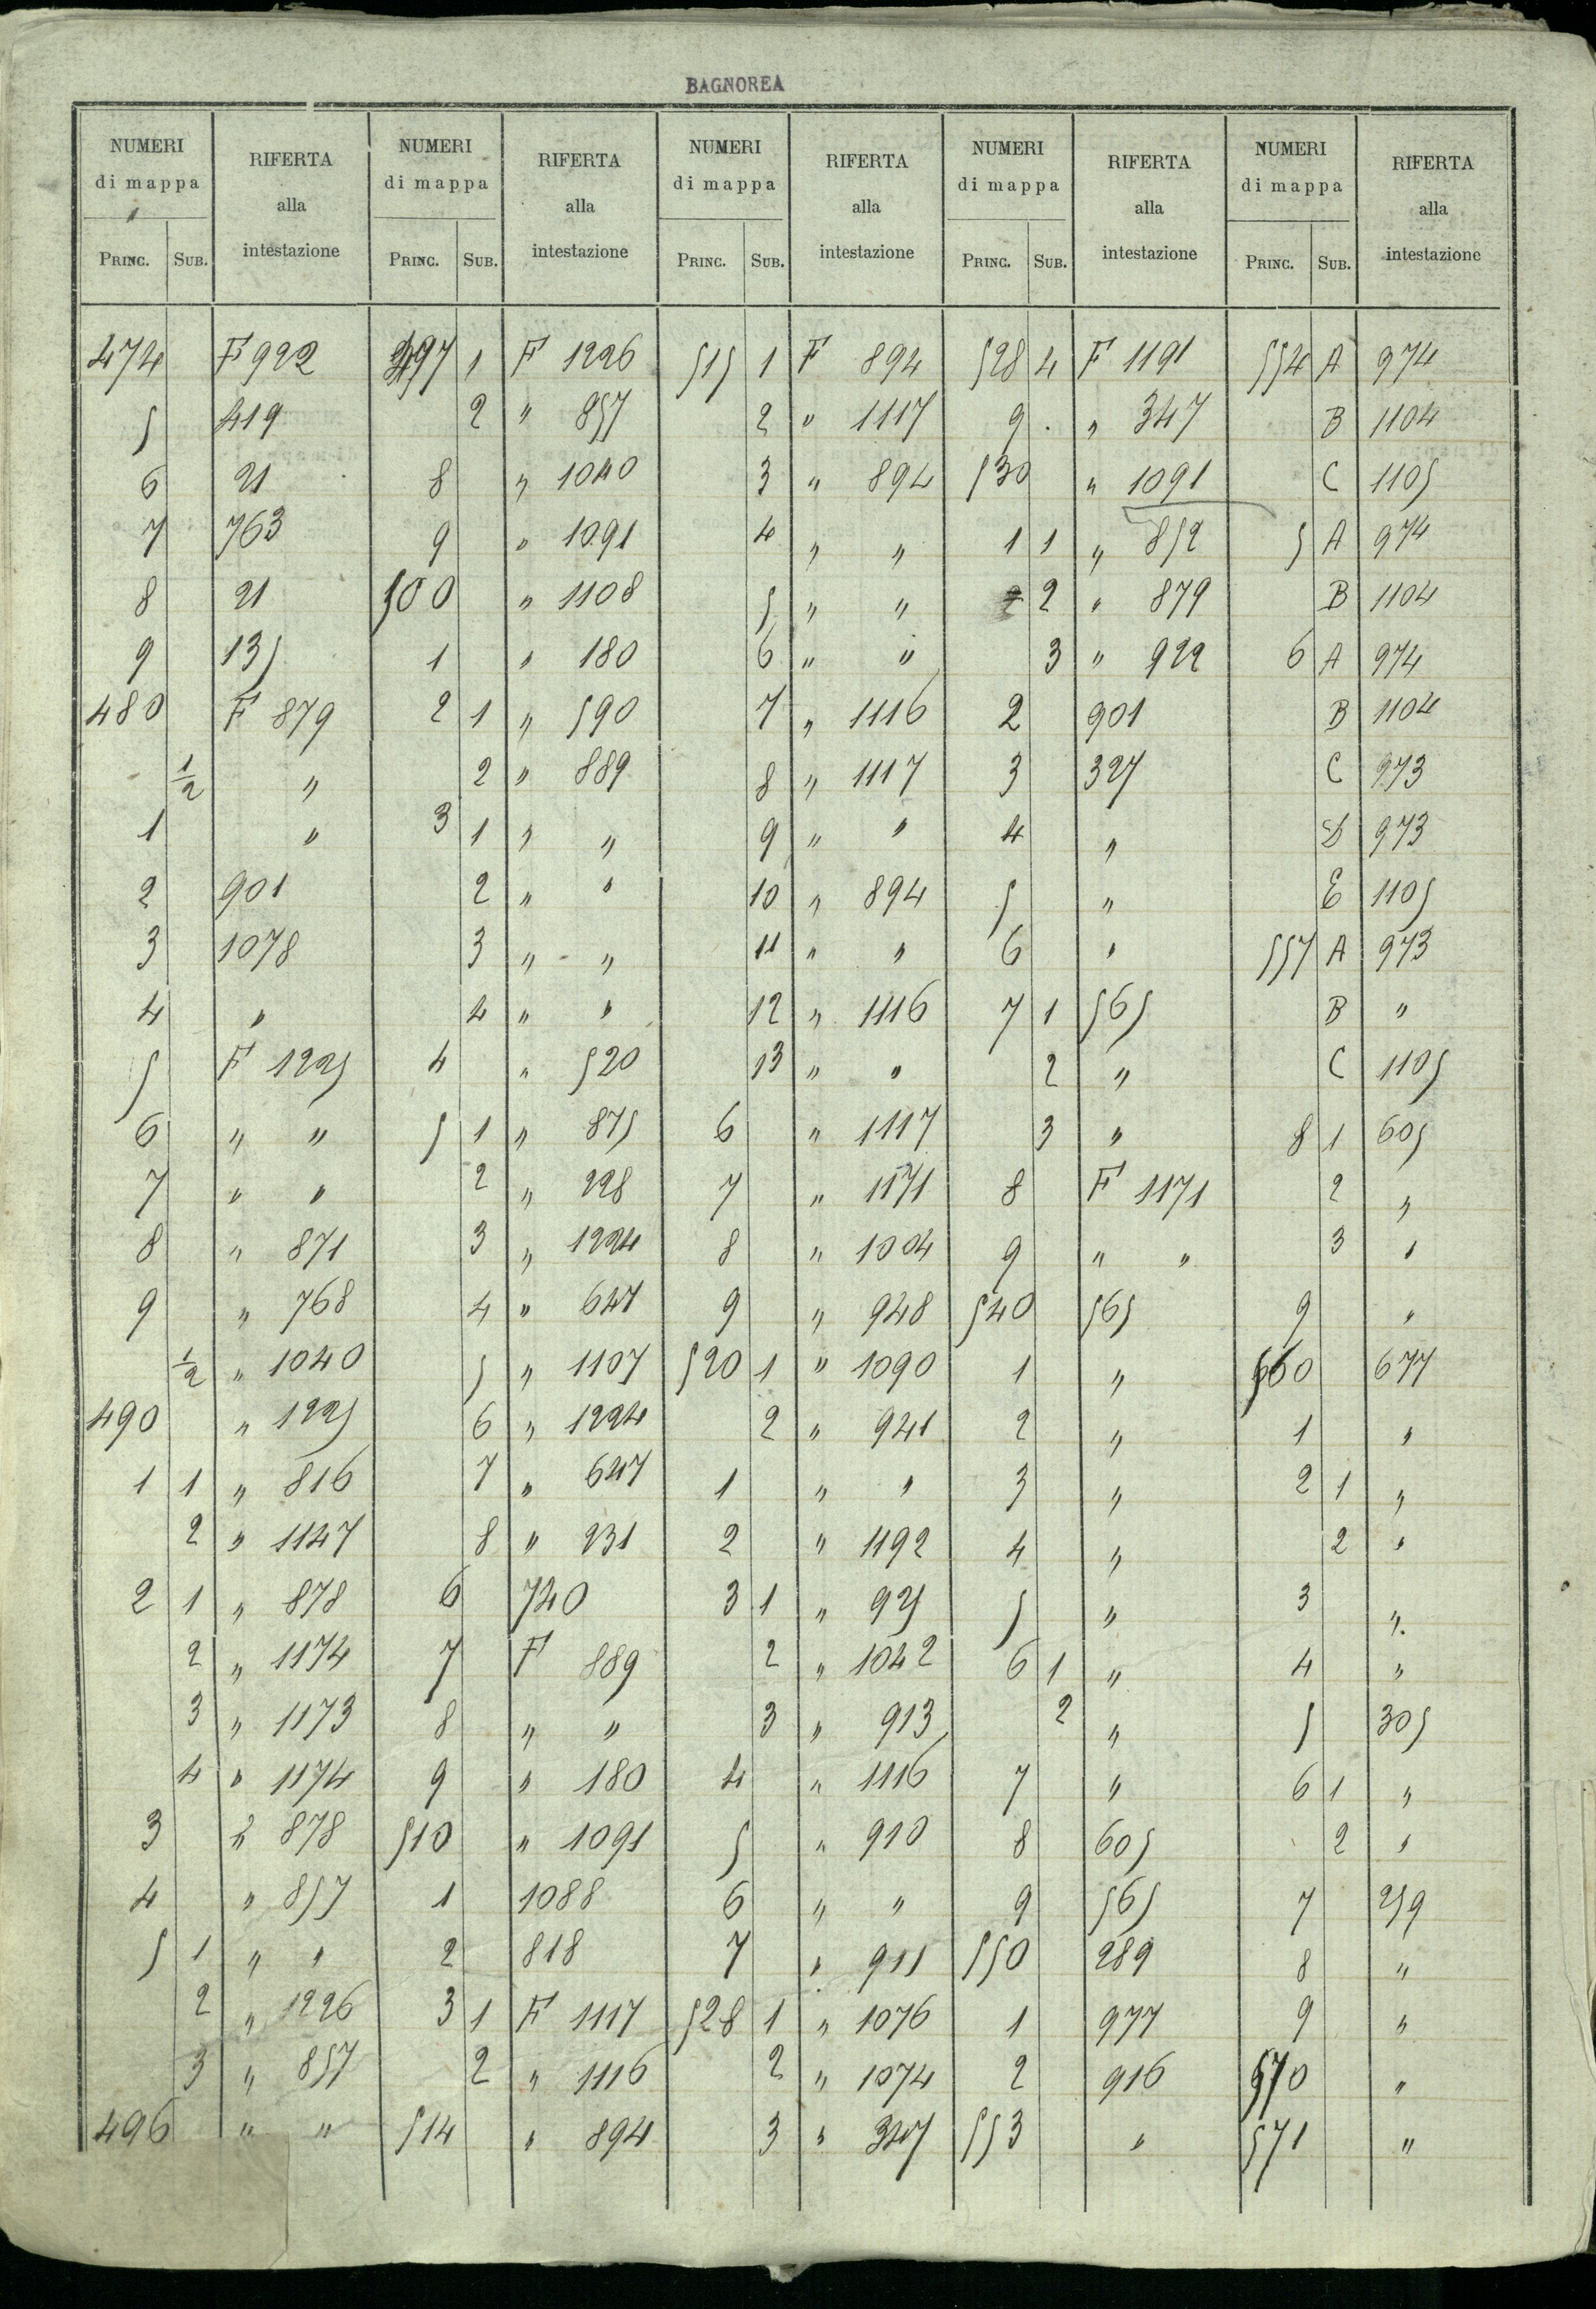 BAGNOREA
NUMERI di mappa | RIFERTA alla intestazione | NUMERI di mappa | RIFERTA alla intestazione | NUMERI di mappa | RIFERTA alla intestazione | NUMERI di mappa | RIFERTA alla intestazione | NUMERI di mappa | RIFERTA alla intestazione
PRINC. | SUB. | PRINC. | SUB. | PRINC. | SUB. | PRINC. | SUB. | PRINC. | SUB.
474 | | F 922 | 497 | 1 | F 1226 | 515 | 1 | F 894 | 528 | 4 | F 1191 | 554 | A | 974
5 | | 419 | | 2 | " 857 | | 2 | " 1117 | 9 | . | " 347 | | B | 1104
6 | | 21 | 8 | | " 1040 | | 3 | " 894 | 530 | | " 1091 | | C | 1105
7 | | 763 | 9 | | " 1091 | | 4 | " " | 1 | 1 | " 852 | 5 | A | 974
8 | | 21 | 500 | | " 1108 | | 5 | " " | | 2 | " 879 | | B | 1104
9 | | 135 | 1 | | " 180 | | 6 | " " | | 3 | " 922 | 6 | A | 974
480 | | F 879 | 2 | 1 | " 590 | | 7 | " 1116 | 2 | | 901 | | B | 1104
| 1/2 | " | | 2 | " 889 | | 8 | " 1117 | 3 | | 327 | | C | 973
1 | | " | 3 | 1 | " " | | 9 | " " | 4 | | " | | D | 973
2 | | 901 | | 2 | " " | | 10 | " 894 | 5 | | " | | E | 1105
3 | | 1078 | | 3 | " " | | 11 | " " | 6 | | " | 557 | A | 973
4 | | " | | 4 | " " | | 12 | " 1116 | 7 | 1 | 565 | | B | "
5 | | F 1225 | 4 | | " 520 | | 13 | " " | | 2 | " | | C | 1105
6 | | " " | 5 | 1 | " 875 | 6 | | " 1117 | | 3 | " | 8 | 1 | 605
7 | | " " | | 2 | " 228 | 7 | | " 1171 | 8 | | F 1171 | | 2 | "
8 | | " 871 | | 3 | " 1224 | 8 | | " 1004 | 9 | | " " | | 3 | "
9 | | " 768 | | 4 | " 647 | 9 | | " 948 | 540 | | 565 | 9 | | "
| 1/2 | " 1040 | | 5 | " 1107 | 520 | 1 | " 1090 | 1 | | " | 560 | | 677
490 | | " 1225 | | 6 | " 1224 | | 2 | " 941 | 2 | | " | 1 | | "
1 | 1 | " 816 | | 7 | " 647 | 1 | | " " | 3 | | " | 2 | 1 | "
| 2 | " 1147 | | 8 | " 231 | 2 | | " 1192 | 4 | | " | | 2 | "
2 | 1 | " 878 | 6 | | 740 | 3 | 1 | " 925 | 5 | | " | 3 | | "
| 2 | " 1174 | 7 | | F 889 | | 2 | " 1042 | 6 | 1 | " | 4 | | "
| 3 | " 1173 | 8 | | " " | | 3 | " 913 | | 2 | " | 5 | | 305
| 4 | " 1174 | 9 | | " 180 | 4 | | " 1116 | 7 | | " | 6 | 1 | "
3 | | " 878 | 510 | | " 1091 | 5 | | " 910 | 8 | | 605 | | 2 | "
4 | | " 857 | 1 | | 1088 | 6 | | " " | 9 | | 565 | 7 | | 259
5 | 1 | " " | 2 | | 818 | 7 | | " 911 | 550 | | 289 | 8 | | "
| 2 | " 1226 | 3 | 1 | F 1117 | 528 | 1 | " 1076 | 1 | | 977 | 9 | | "
| 3 | " 857 | | 2 | " 1116 | | 2 | " 1074 | 2 | | 916 | 570 | | "
496 | | " " | 514 | | " 894 | | 3 | " 347 | 553 | | " | 571 | | "